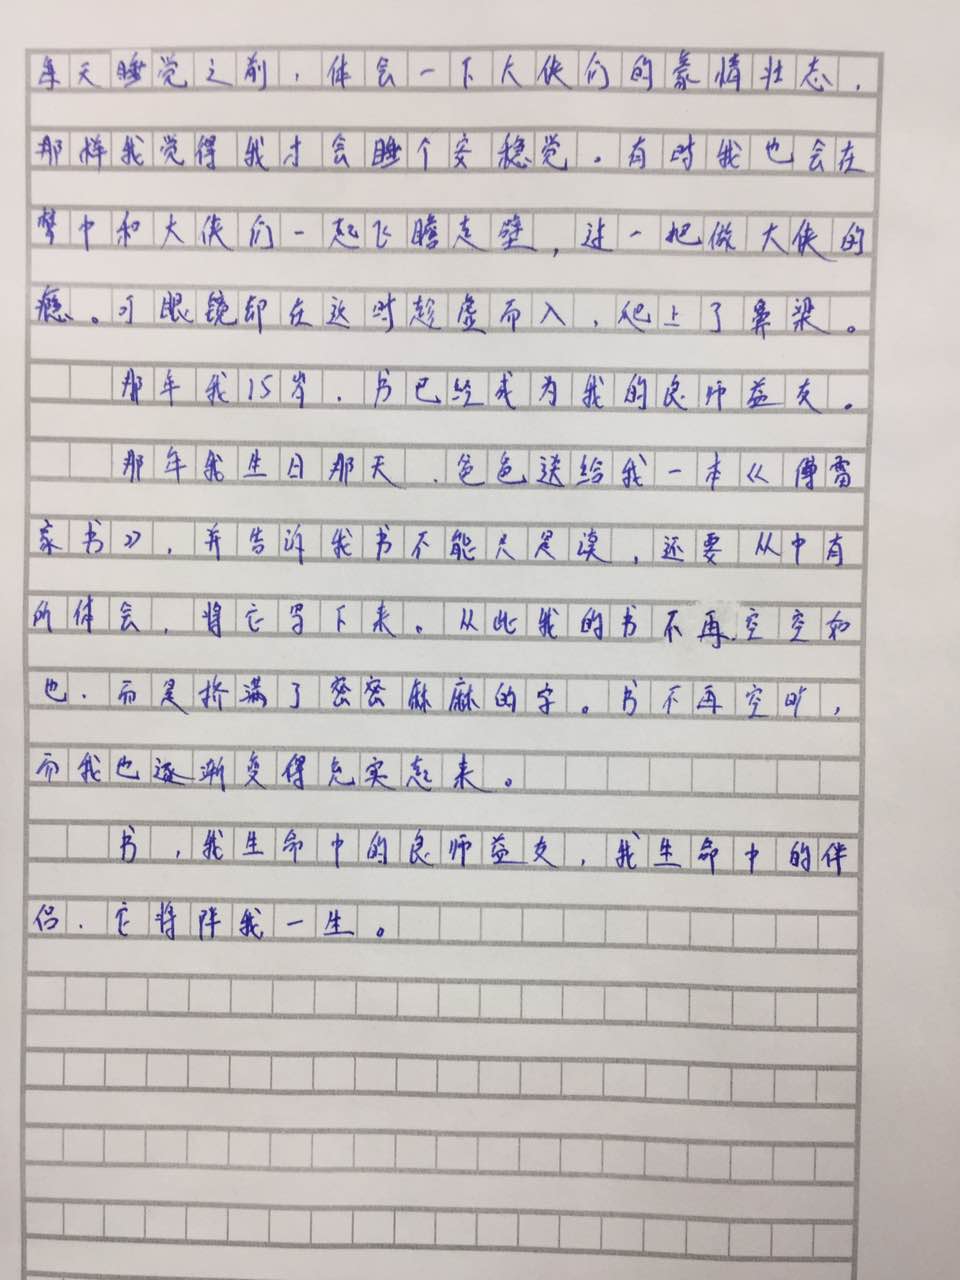 每天睡觉之前，体会一下大侠们的豪情壮志，
那样我觉得我才会睡个安稳觉。有时我也会在
梦中和大侠们一起飞瞻走壁，过一把做大侠的
瘾。可眼镜却在这时趁虚而入，爬上了鼻梁。
那年我15岁，书已经成为我的良师益友。
那年我生日那天，爸爸送给我一本《傅雷
家书》，并告诉我书不能只是读，还要从中有
所体会，将它写下来。从此我的书不再空空如
也，而是挤满了密密麻麻的字。书不再空旷，
而我也逐渐变得充实起来。
书，我生命中的良师益友，我生命中的伴
侣，它将陪我一生。